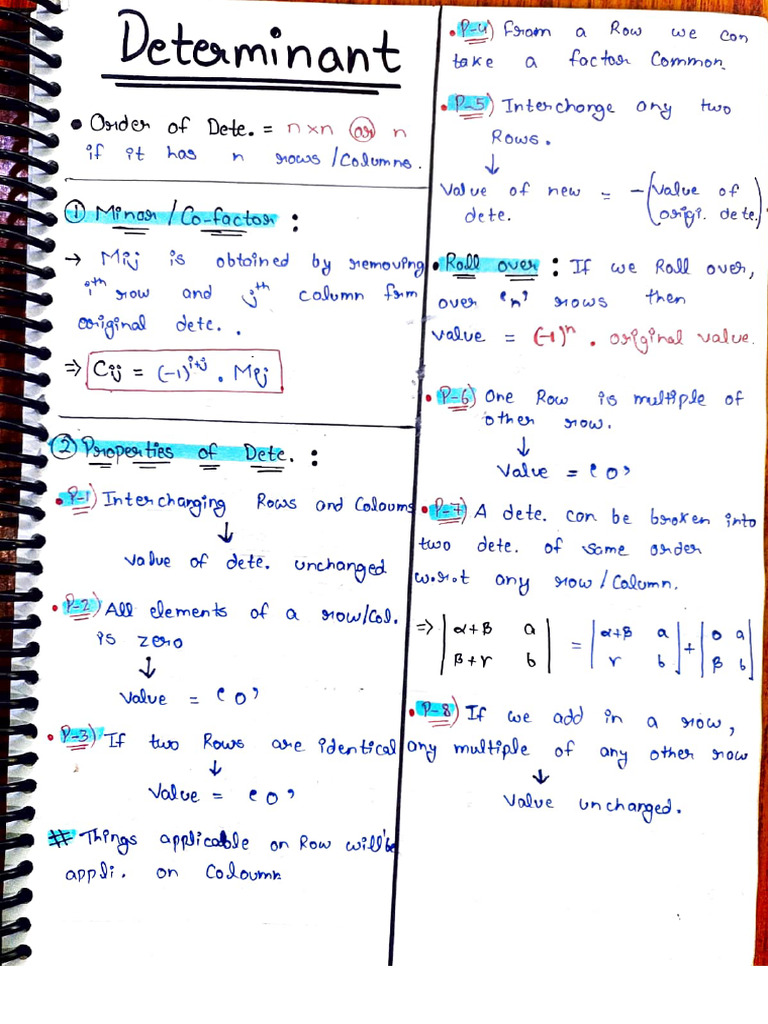 Determinant
• Order of Dete. = n×n (or) n
if it has n rows/Columns.
① Minor/Co-factor :
→ Mij is obtained by removing
ith row and jth column form
original dete..
⇒ Cij = (-1)^i+j . Mij
② Properties of Dete. :
• P-1) Interchanging Rows and Coloums
↓
Value of dete. unchanged
• P-2) All elements of a row/Col.
is zero
↓
Value = '0'
• P-3) If two Rows are identical
↓
Value = '0'
# Things applicable on Row will be
appli. on Coloumn
• P-4) From a Row we can
take a factor Common.
• P-5) Interchange any two
Rows.
↓
Value of new = -(Value of
dete. origi. dete.)
• Roll over : If we Roll over,
over 'n' rows then
value = (-1)^n . original value.
• P-6) One Row is multiple of
other row.
↓
Value = '0'
• P-7) A dete. can be broken into
two dete. of same order
w.r.t any row/Column.
⇒ |α+β a| = |α+β a| + |0 a|
|β+r b| |r b| |β b|
• P-8) If we add in a row,
any multiple of any other row
↓
Value unchanged.